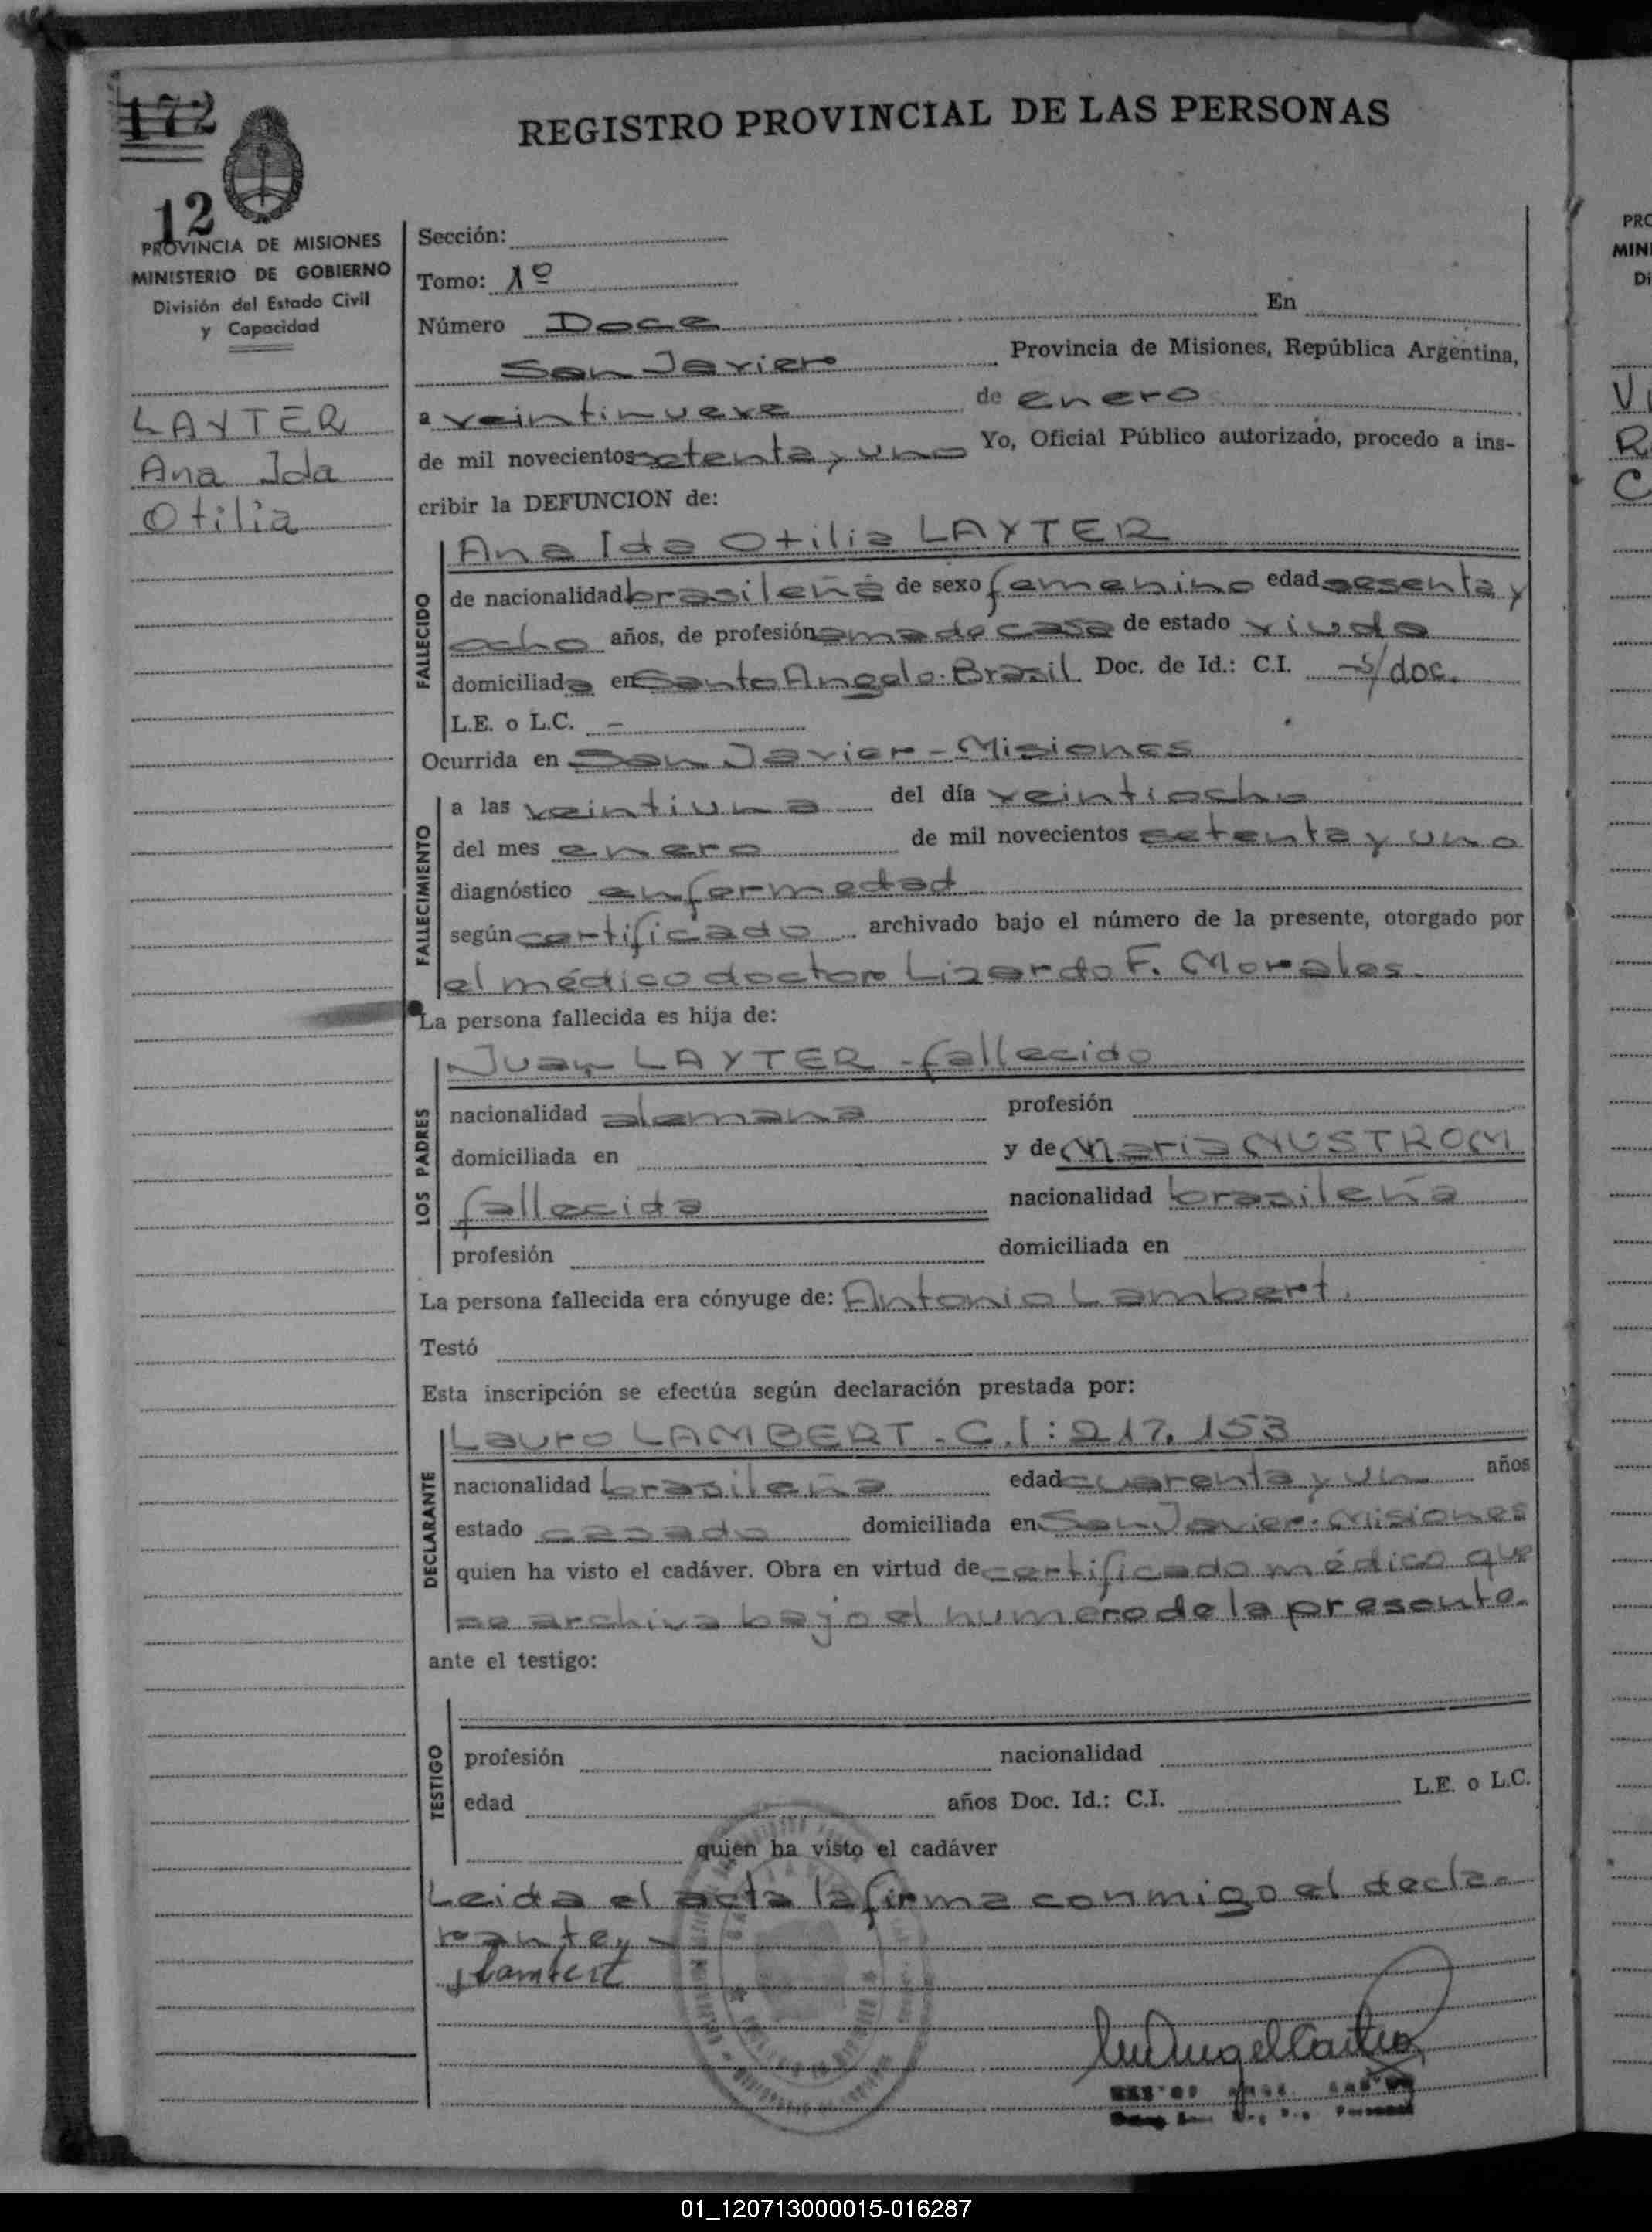 172
12
REGISTRO PROVINCIAL DE LAS PERSONAS
PROVINCIA DE MISIONES
MINISTERIO DE GOBIERNO
División del Estado Civil
y Capacidad
LAYTER
Ana Ida
Otilia
Sección:
Tomo: 1º
Número Doce En
San Javier Provincia de Misiones, República Argentina,
a veintinueve de enero
de mil novecientos setenta y uno Yo, Oficial Público autorizado, procedo a ins-
cribir la DEFUNCION de:
FALLECIDO
Ana Ida Otilia LAYTER
de nacionalidad brasileña de sexo femenino edad sesenta y
ocho años, de profesión ama de casa de estado viuda
domiciliada en Santo Angelo-Brasil. Doc. de Id.: C.I. -s/doc.
L.E. o L.C. -
Ocurrida en San Javier-Misiones
FALLECIMIENTO
a las veintiuna del día veintiocho
del mes enero de mil novecientos setenta y uno
diagnóstico enfermedad
según certificado archivado bajo el número de la presente, otorgado por
el médico doctor Lizardo F. Morales.
La persona fallecida es hija de:
LOS PADRES
Juan LAYTER -fallecido
nacionalidad alemana profesión
domiciliada en y de Maria NUSTROM
fallecida nacionalidad brasileña
profesión domiciliada en
La persona fallecida era cónyuge de: Antonio Lambert.
Testó
Esta inscripción se efectúa según declaración prestada por:
DECLARANTE
Lauro LAMBERT.C.I: 217.153
nacionalidad brasileña edad cuarenta y un años
estado casado domiciliada en San Javier-Misiones
quien ha visto el cadáver. Obra en virtud de certificado médico que
se archiva bajo el numero de la presente.
ante el testigo:
TESTIGO
profesión nacionalidad
edad años Doc. Id.: C.I. L.E. o L.C.
quien ha visto el cadáver
Leida el acta la firma conmigo el decla-
rante,
Lambert
01_120713000015-016287
PRO
MINI
Di
Vi
R
C